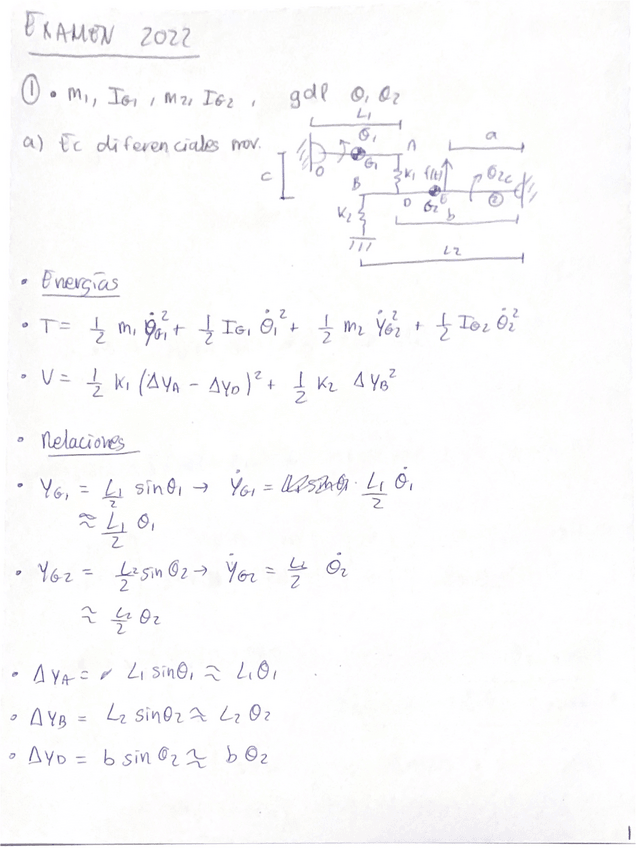 EXAMEN 2022
① • m₁, I_G₁, m₂, I_G₂, gdl θ₁ θ₂
a) Ec diferenciales mov.
L₁
θ₁
A
a
O
G₁
c
K₁
f(t)
θ₂
C
B
D
G₂
E
②
K₂
b
L₂
• Energías
• T = 1/2 m₁ ẏ_G₁² + 1/2 I_G₁ θ̇₁² + 1/2 m₂ ẏ_G₂² + 1/2 I_G₂ θ̇₂²
• V = 1/2 K₁ (ΔY_A - ΔY_D)² + 1/2 K₂ ΔY_B²
• Relaciones
• Y_G₁ = L₁/2 sinθ₁ → Ẏ_G₁ = L₁/2 θ̇₁
≈ L₁/2 θ₁
• Y_G₂ = L₂/2 sinθ₂ → Ẏ_G₂ = L₂/2 θ̇₂
≈ L₂/2 θ₂
• ΔY_A = L₁ sinθ₁ ≈ L₁θ₁
• ΔY_B = L₂ sinθ₂ ≈ L₂ θ₂
• ΔY_D = b sinθ₂ ≈ b θ₂
1